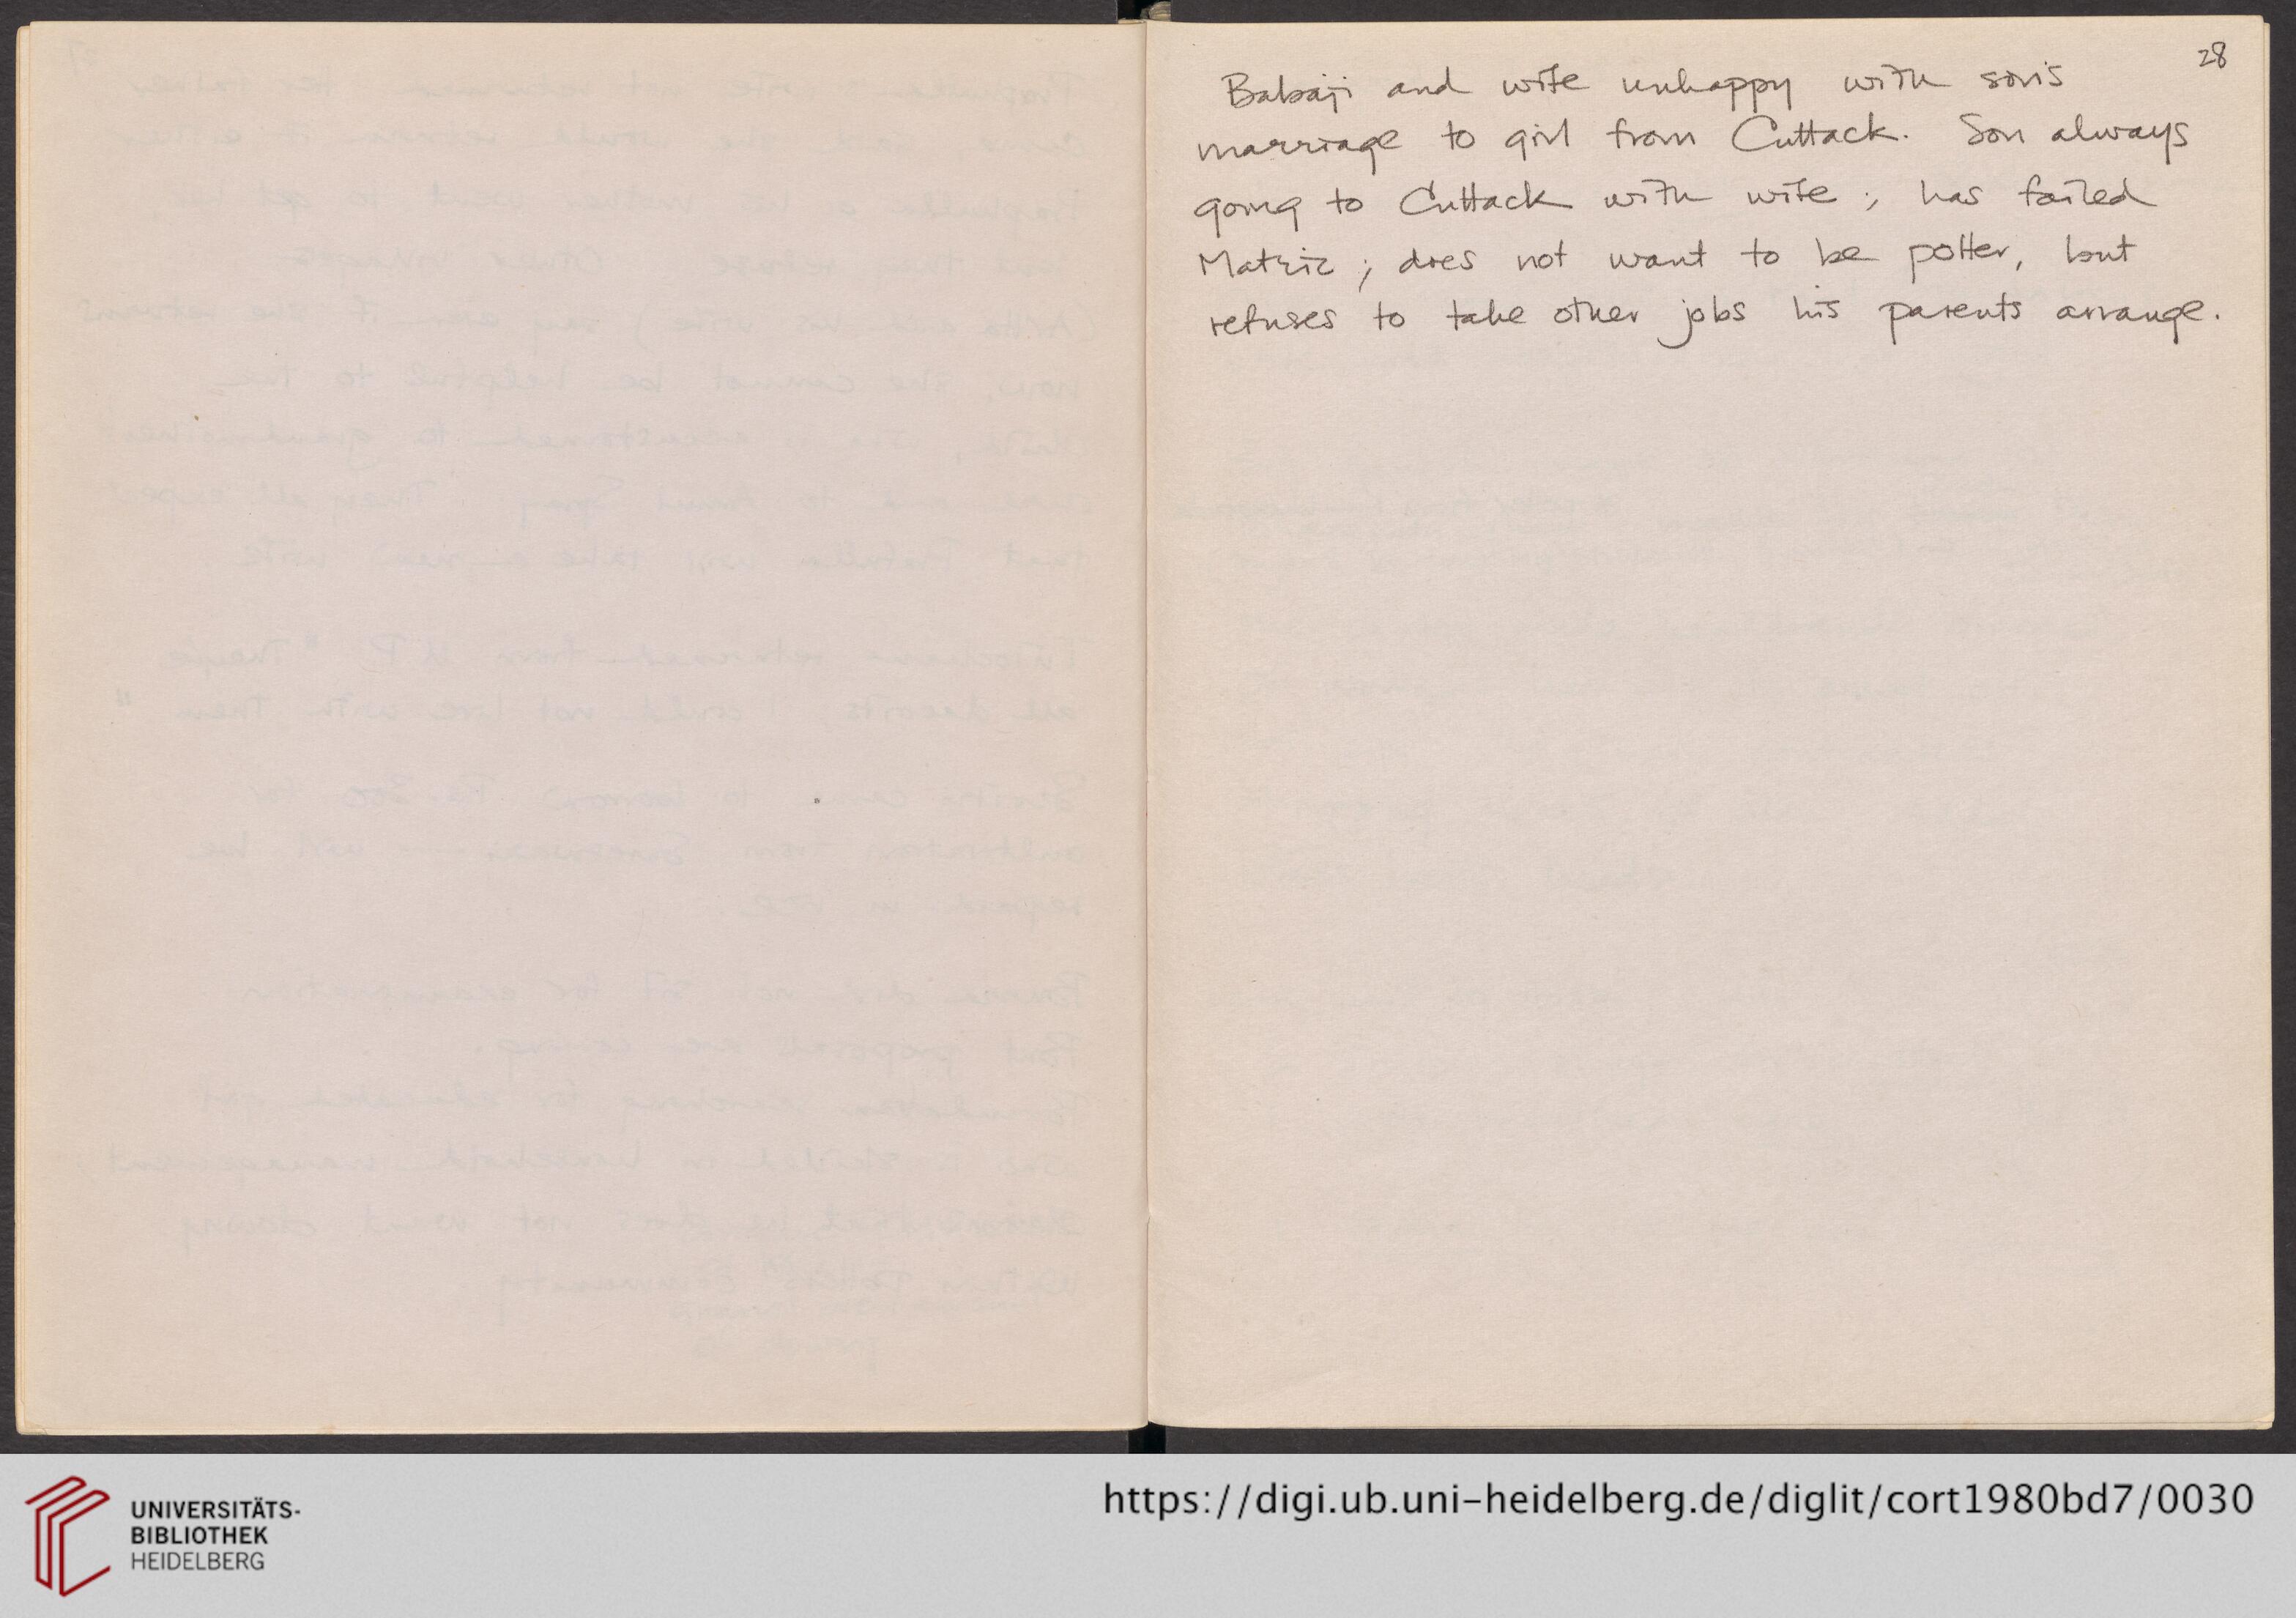 28
Babaji and wife unhappy with son's
marriage to girl from Cuttack. Son always
going to Cuttack with wife; has failed
Matric; does not want to be potter, but
refuses to take other jobs his parents arrange.
UNIVERSITÄTS-
BIBLIOTHEK
HEIDELBERG
https://digi.ub.uni-heidelberg.de/diglit/cort1980bd7/0030